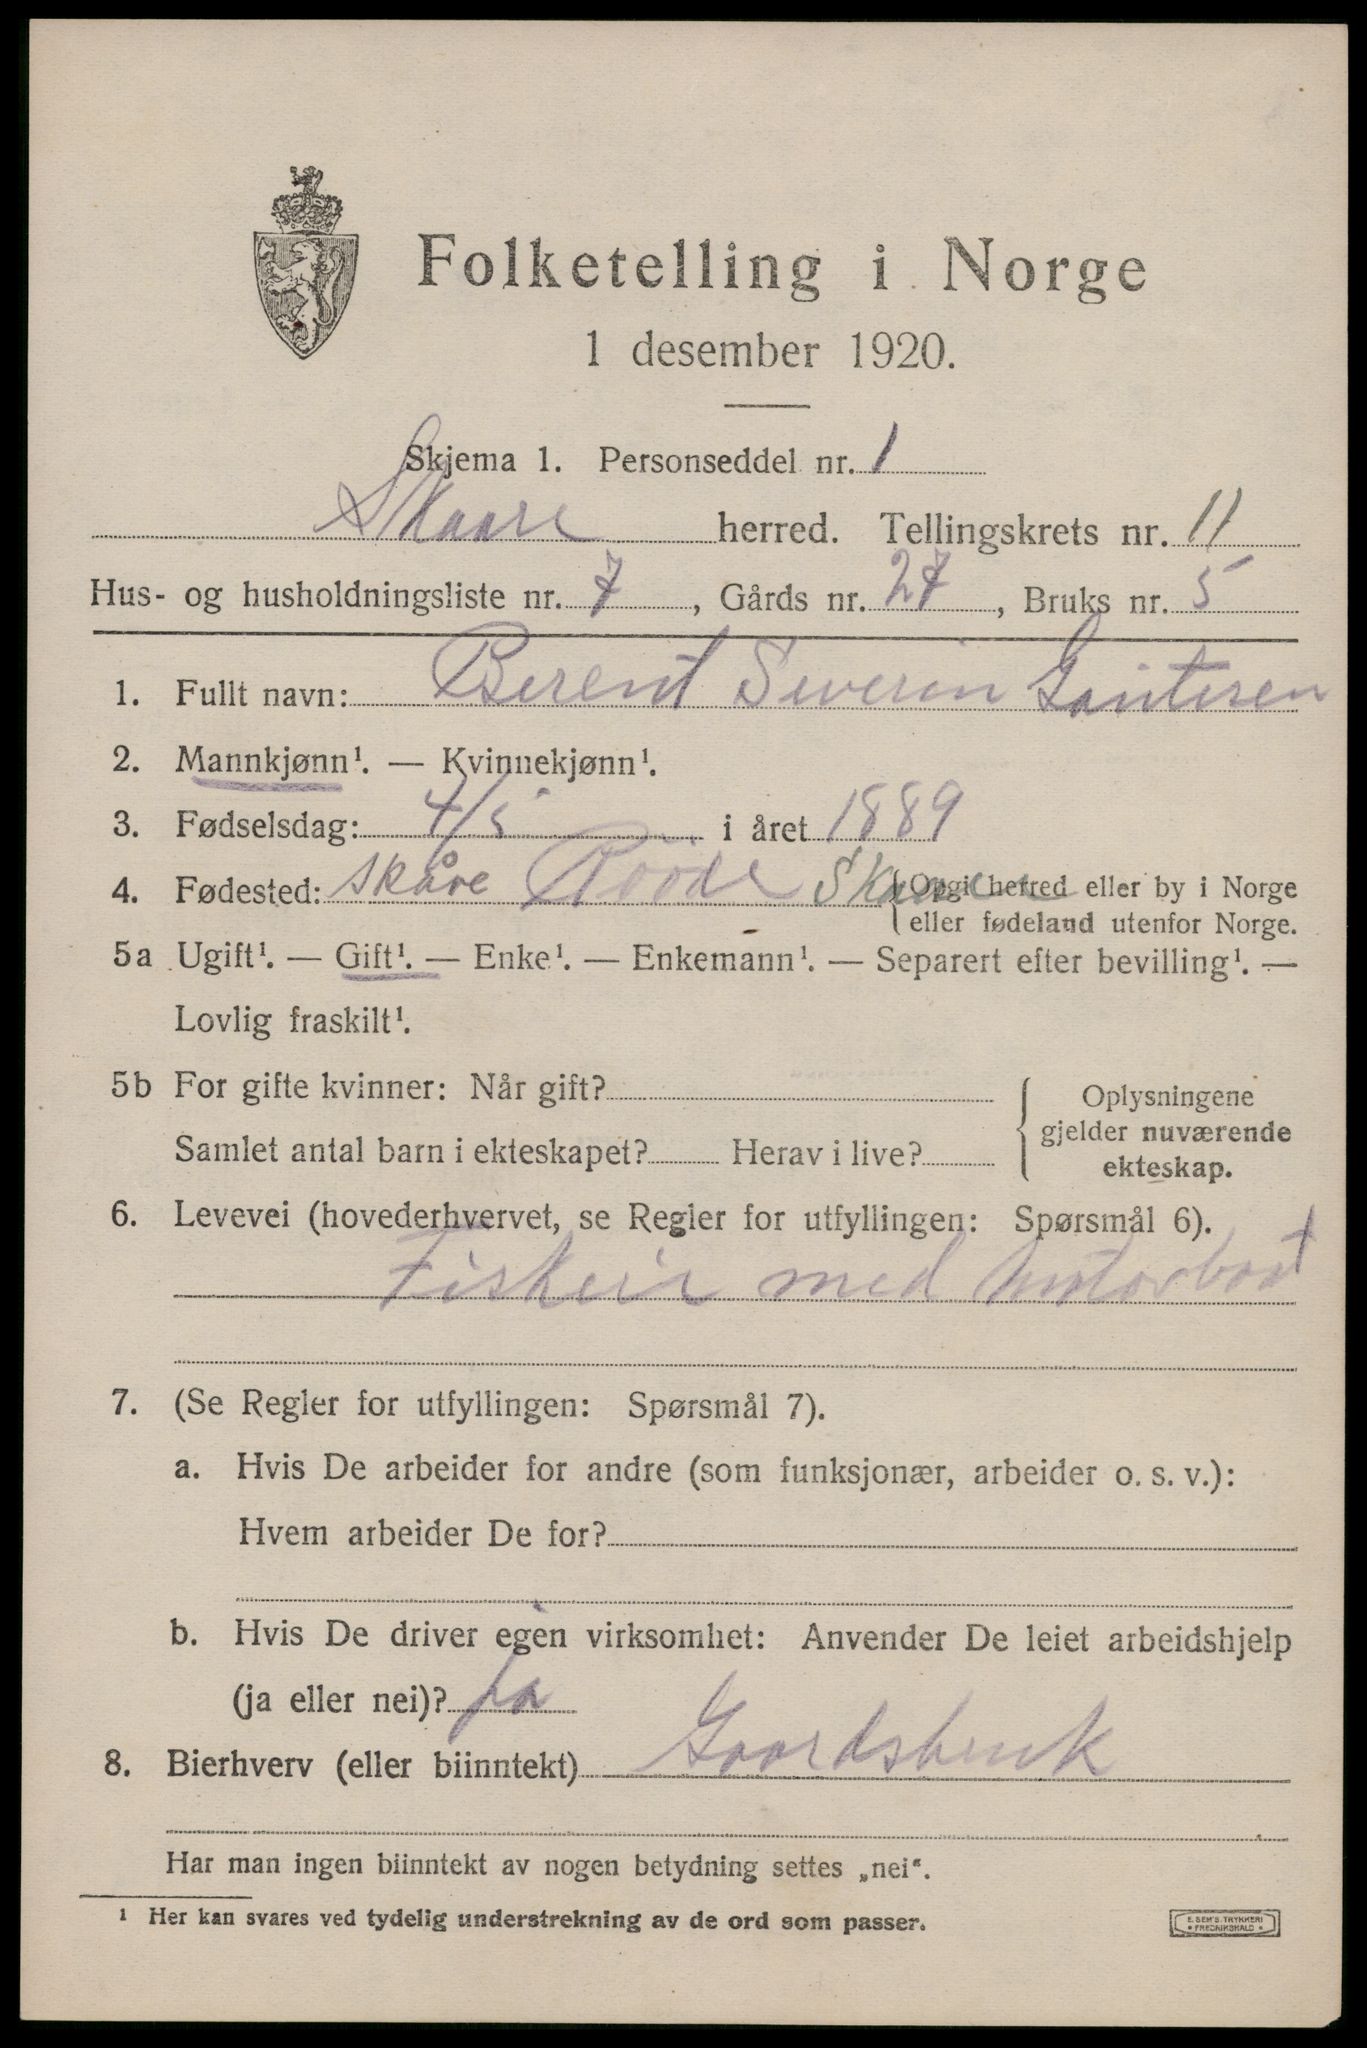 Folketelling i Norge
1 desember 1920.
Skjema 1. Personseddel nr. 1
Skaare herred. Tellingskrets nr. 11
Hus- og husholdningsliste nr. 7, Gårds nr. 27, Bruks nr. 5
1. Fullt navn: Berent Severin
2. Mannkjønn¹. — Kvinnekjønn¹.
3. Fødselsdag: 4/5 i året 1889
4. Fødested: Skåre Skaare {Opgi herred eller by i Norge
eller fødeland utenfor Norge.
5a Ugift¹. — Gift¹. — Enke¹. — Enkemann¹. — Separert efter bevilling¹. —
Lovlig fraskilt¹.
5b For gifte kvinner: Når gift?
Samlet antal barn i ekteskapet? Herav i live?
Oplysningene
gjelder nuværende
ekteskap.
6. Levevei (hovederhvervet, se Regler for utfyllingen: Spørsmål 6).
Fisker med Motorbaat
7. (Se Regler for utfyllingen: Spørsmål 7).
a. Hvis De arbeider for andre (som funksjonær, arbeider o. s. v.):
Hvem arbeider De for?
b. Hvis De driver egen virksomhet: Anvender De leiet arbeidshjelp
(ja eller nei)? ja
8. Bierhverv (eller biinntekt) Gaardsbruk
Har man ingen biinntekt av nogen betydning settes „nei“.
¹ Her kan svares ved tydelig understrekning av de ord som passer.
E. SEM'S TRYKKERI
FREDRIKSHALD